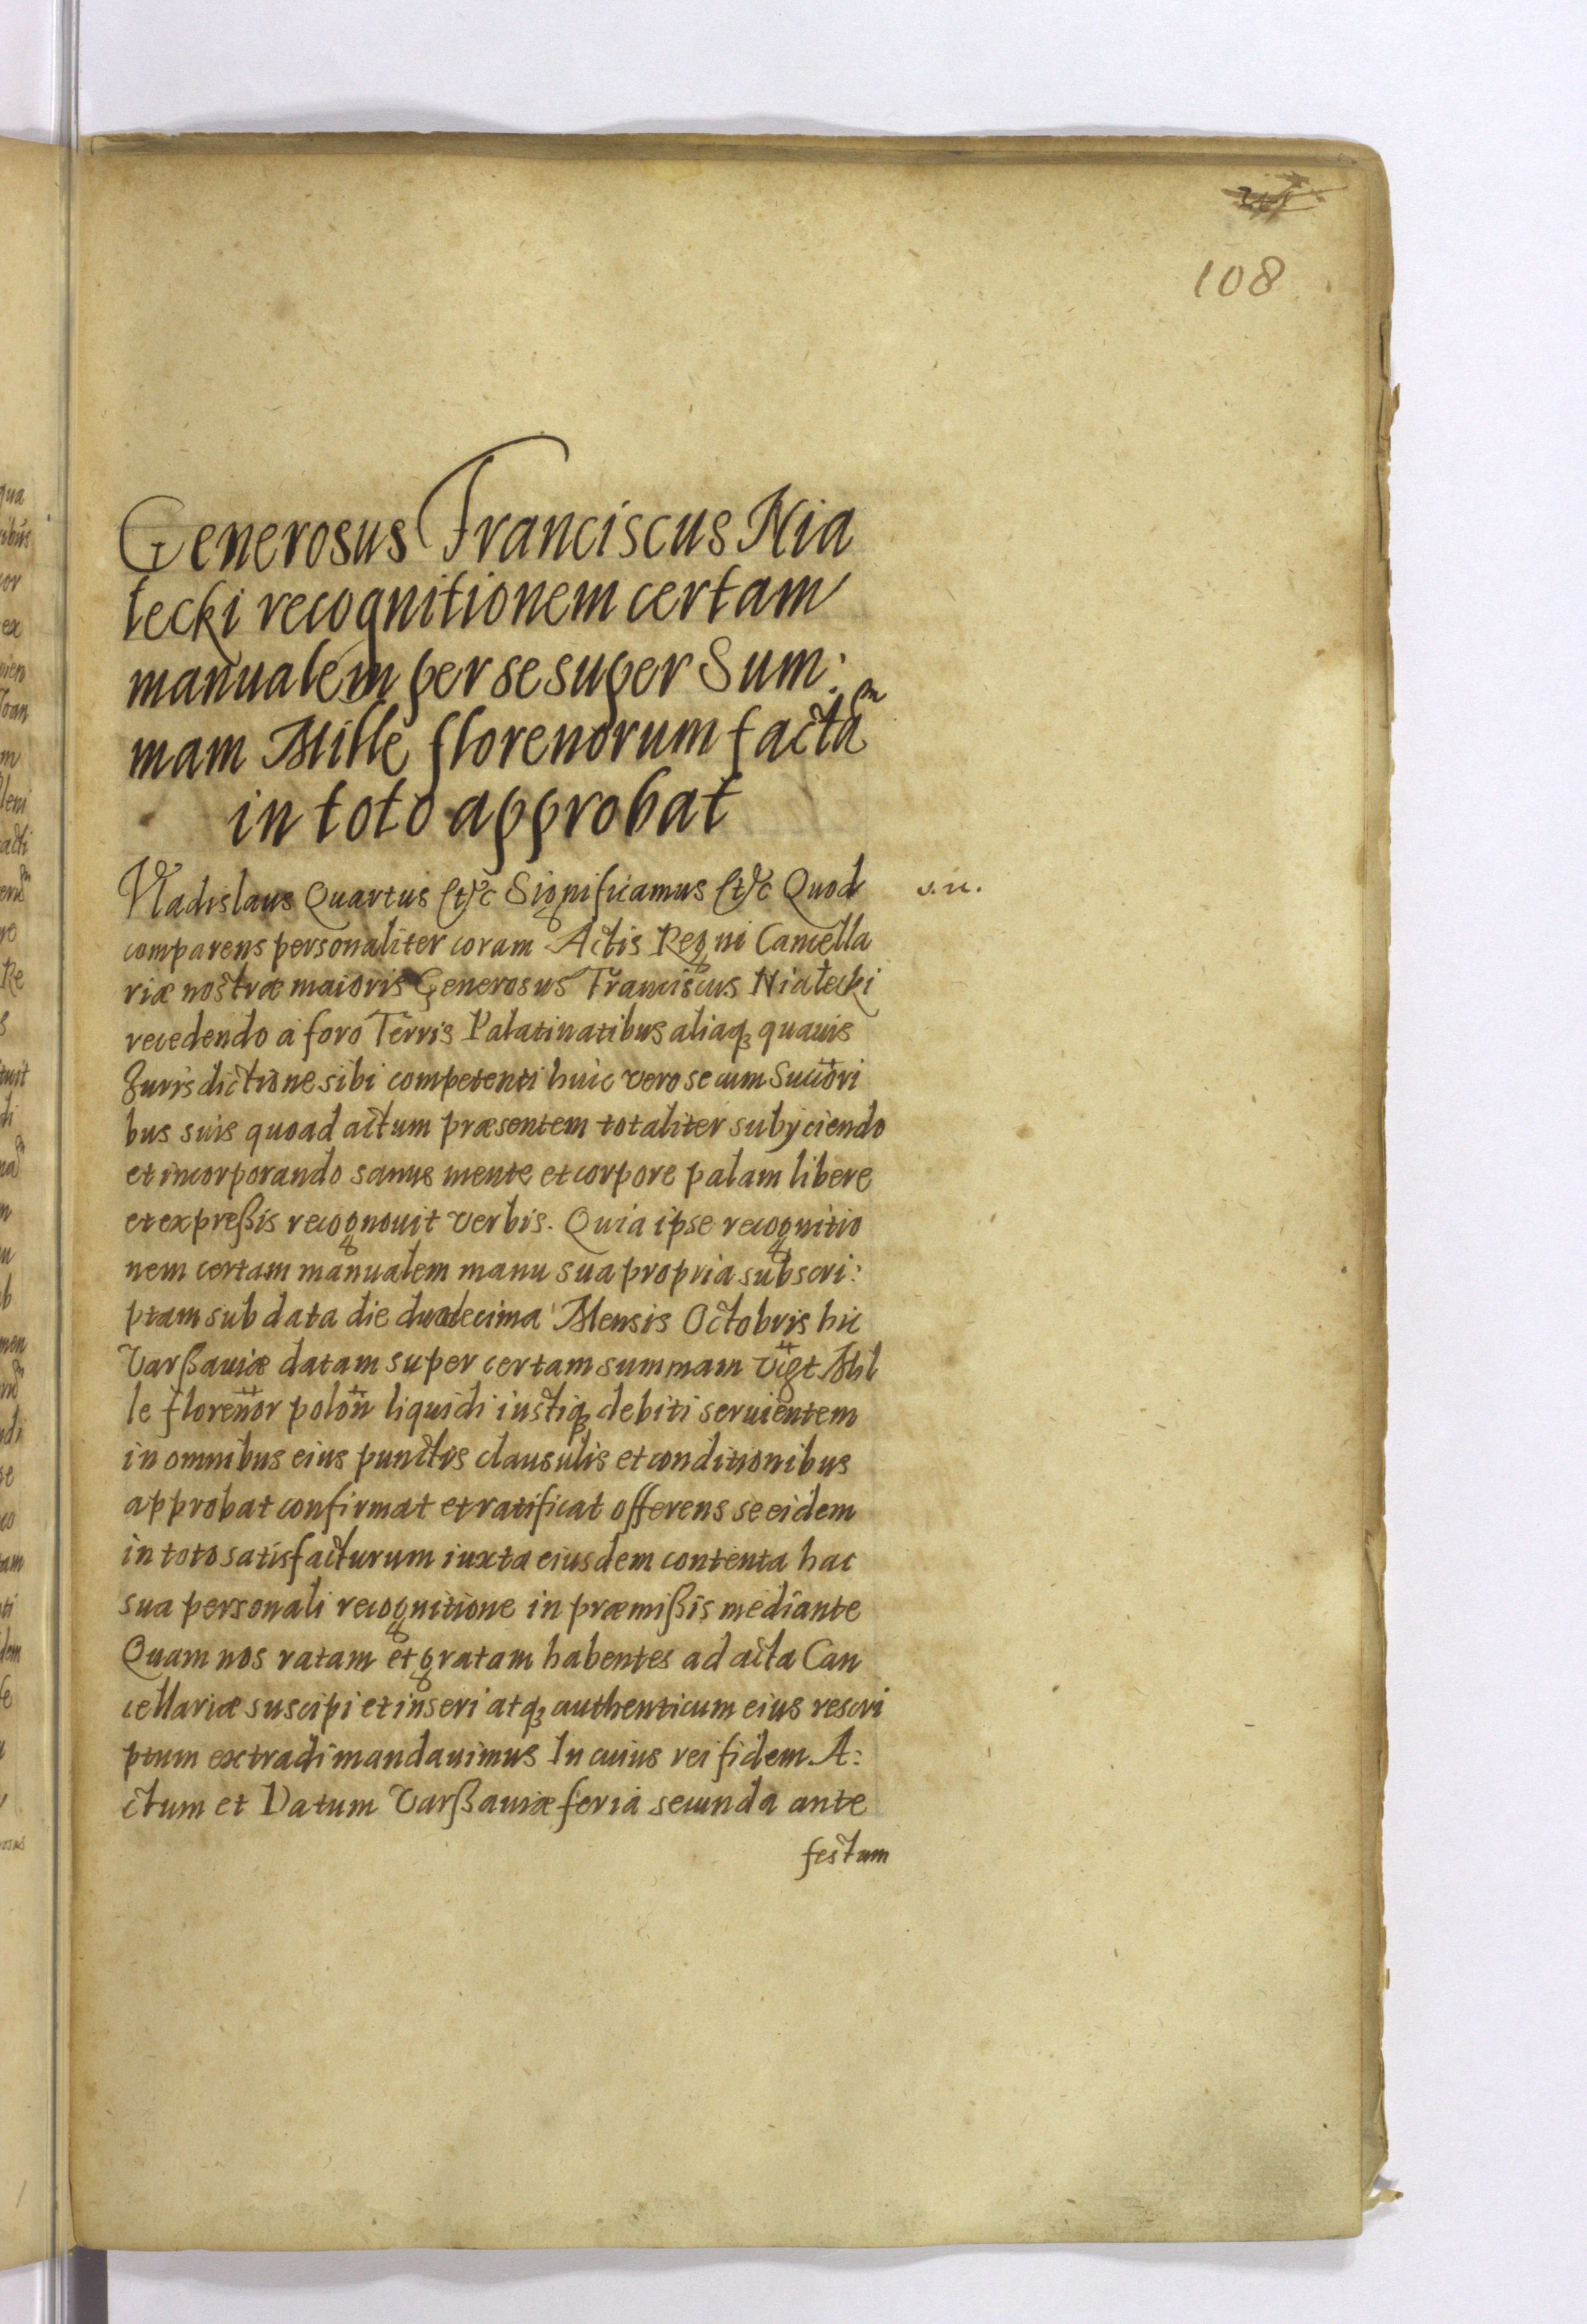 108
Generosus Franciscus Nia
tecki recognitionem certam
manualem per se super Sum:
mam Mille florenorum factam
in toto approbat
Vladislaus Quartus etc Significamus etc Quod
comparens personaliter coram Actis Regni Cancella
riæ nostræ maioris Generosus Franciscus Niatecki
recedendo a foro Terris Palatinatibus aliaq3 quauis
Jurisdictione sibi competenti huic vero se cum Succori
bus suis quoad actum præsentem totaliter subyciendo
et incorporando sanus mente et corpore palam libere
et expreßis recognouit verbis. Quia ipse recognitio
nem certam manualem manu sua propria subscri:
ptam sub data die duodecima Mensis Octobris hic
Varßauiæ datam super certam summam vigt Mil
le florenor polon liquidi iustiq3 debiti seruientem
in omnibus eius punctis clausulis et conditionibus
approbat confirmat et ratificat offerens se eidem
in toto satisfacturum iuxta eiusdem contenta hac
sua personali recognitione in præmißis mediante
Quam nos ratam et gratam habentes ad acta Can
cellariæ suscipi et inseri atq3 authenticum eius rescri
ptum extradi mandauimus In cuius rei fidem A:
ctum et Datum Varßauiæ feria secunda ante
festum